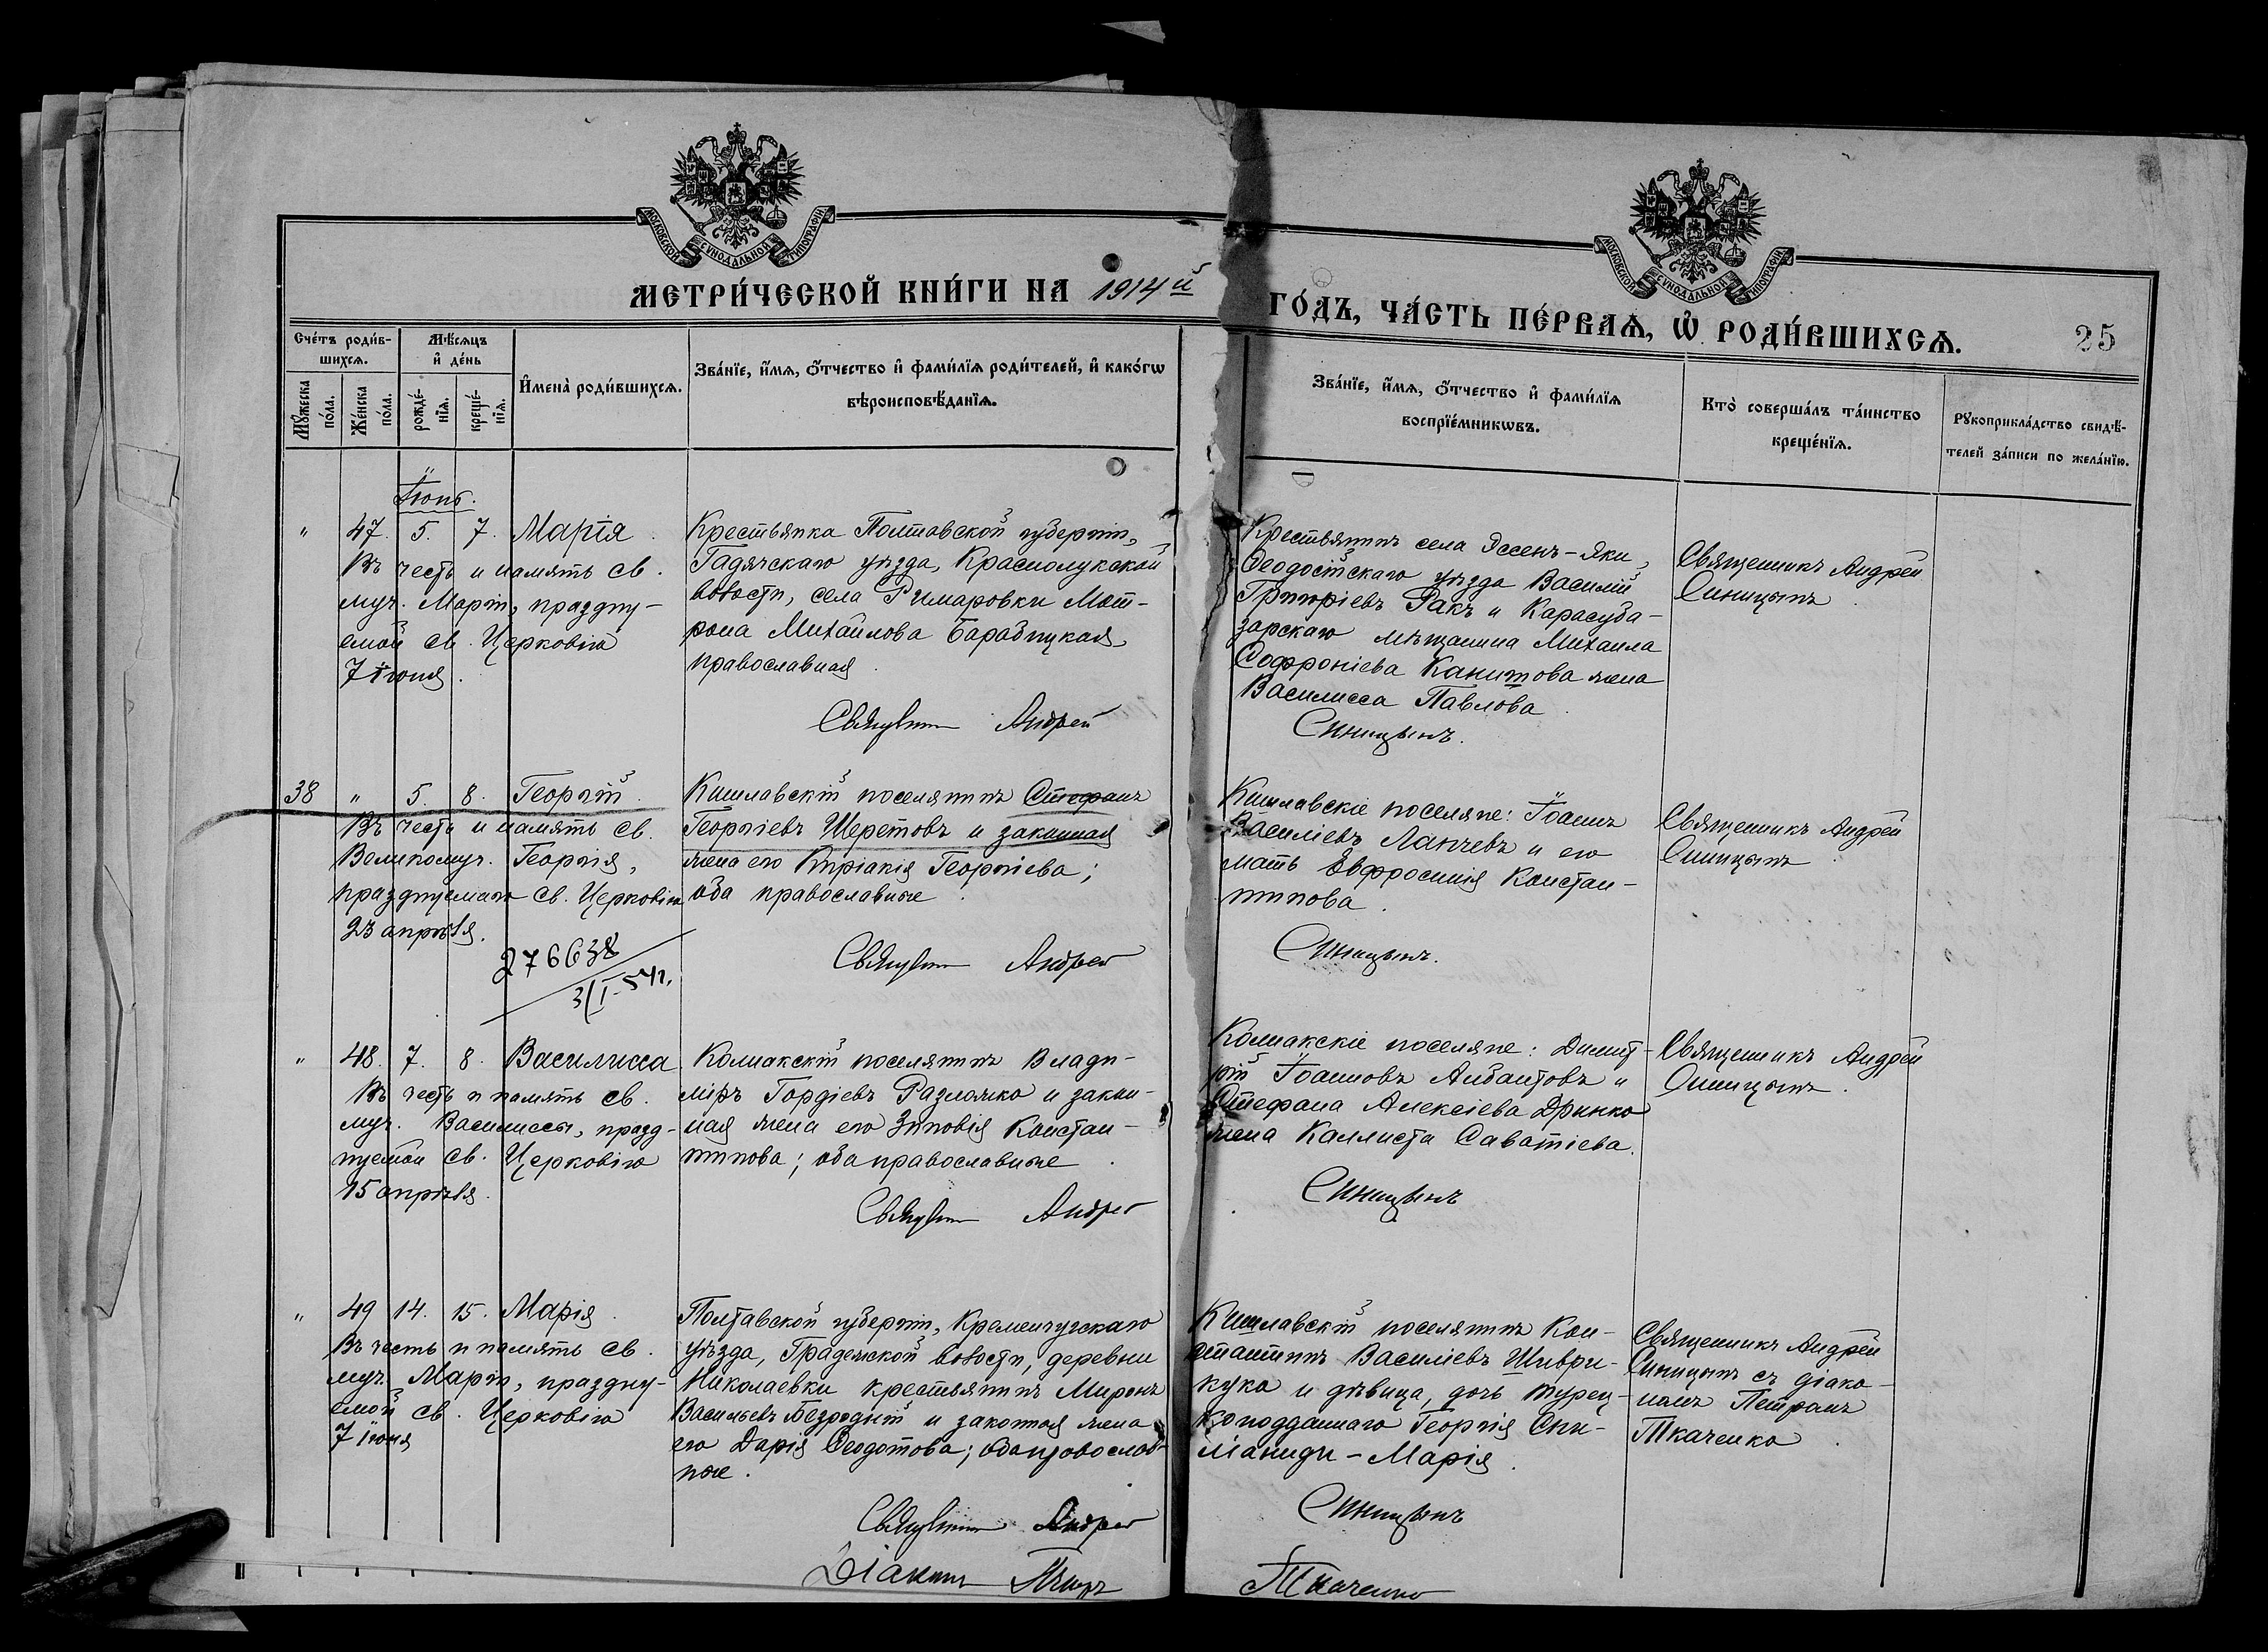 МОСКОВСКОЙ СѴНОДАЛЬНОЙ ТИПОГРАФІИ
МЕТРИ́ЧЕСКОЙ КНИ́ГИ НА 1914й
МОСКОВСКОЙ СѴНОДАЛЬНОЙ ТИПОГРАФІИ
ГО́ДЪ, ЧА́СТЬ ПЕ́РВАѦ, Ѡ҆ РОДИ́ВШИХСѦ.
25
Сче́тъ роди́в-
шихсѧ.
Мꙋ́жеска
по́ла.
Же́нска
по́ла.
Мѣ́сѧцъ
и҆ де́нь
рожде́-
нїѧ.
креще́-
нїѧ.
И҆мена̀ роди́вшихсѧ.
Зва́нїе, и҆́мѧ, ѻ҆́тчество и҆ фами́лїѧ роди́телей, и҆ како́гѡ
вѣроисповѣ́данїѧ.
Зва́нїе, и҆́мѧ, ѻ҆́тчество и҆ фами́лїѧ
воспрїе́мникѡвъ.
Кто̀ соверша́лъ та́инство
креще́нїѧ.
Рꙋкоприкла́дство свидѣ́-
телей за́писи по жела́нїю.
Іюнь.
" 47. 5. 7. Марія.
Въ честь и память св.
муч. Маріи, праздну-
емой св. Церковію
7 іюня.
Крестьянка Полтавской губерніи,
Гадячскаго уѣзда, Краснолукской
волости, села Римаровки Мат-
рона Михайлова Барабицкая,
православная.
Священникъ Андрей
Крестьянинъ села Эссенъ-Эки,
Ѳеодосійскаго уѣзда Василій
Григоріевъ Ракъ и Карасуба-
зарскаго мѣщанина Михаила
Софроніева Канитова жена
Василисса Павлова.
Синицынъ.
Священникъ Андрей
Синицынъ.
38 " 5. 8. Георгій.
Въ честь и память св.
Великомуч. Георгія,
празднуемаго св. Церковію
23 апрѣля.
276638
3/I-54г.
Кишлавскій поселянинъ Стефанъ
Георгіевъ Шеретовъ и законная
жена его Киріакія Георгіева;
оба православные.
Священникъ Андрей
Кишлавскіе поселяне: Іоаннъ
Василіевъ Ланчевъ и его
мать Евфросинія Констан-
тинова.
Синицынъ.
Священникъ Андрей
Синицынъ.
" 48. 7. 8. Василисса
Въ честь и память св.
муч. Василиссы, празд-
нуемой св. Церковію
15 апрѣля.
Колпакскій поселянинъ Влади-
міръ Гордіевъ Размочко и закон-
ная жена его Зиновія Констан-
тинова; оба православные.
Священникъ Андрей
Колпакскіе поселяне: Димит-
рій Іоанновъ Айбаитовъ и
Стефана Алексіева Дринко
жена Каллиста Саватіева.
Синицынъ
Священникъ Андрей
Синицынъ.
" 49 14. 15. Марія.
Въ честь и память св.
муч. Маріи, праздну-
емой св. Церковію
7 іюня
Полтавской губерніи, Кременчугскаго
уѣзда, Градижской волости, деревни
Николаевки крестьянинъ Миронъ
Васильевъ Безродній и законная жена
его Дарія Ѳеодотова; оба православ-
ные.
Священникъ Андрей
Діаконъ Петръ
Кишлавскій поселянинъ Кон-
стантинъ Василіевъ Шиври-
куко и дѣвица, дочь турец-
коподданнаго Георгія Спи-
ліаниди-Марія.
Синицынъ
Ткаченко
Священникъ Андрей
Синицынъ съ діако-
номъ Петромъ
Ткаченко.